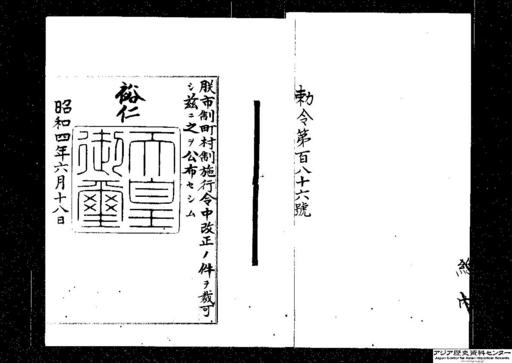 勅令第百八十六號
朕市制町村制施行令中改正ノ件ヲ裁可
シ茲ニ之ヲ公布セシム
裕仁
天皇
御璽
昭和四年六月十八日
アジア歴史資料センター
Japan Center for Asian Historical Records